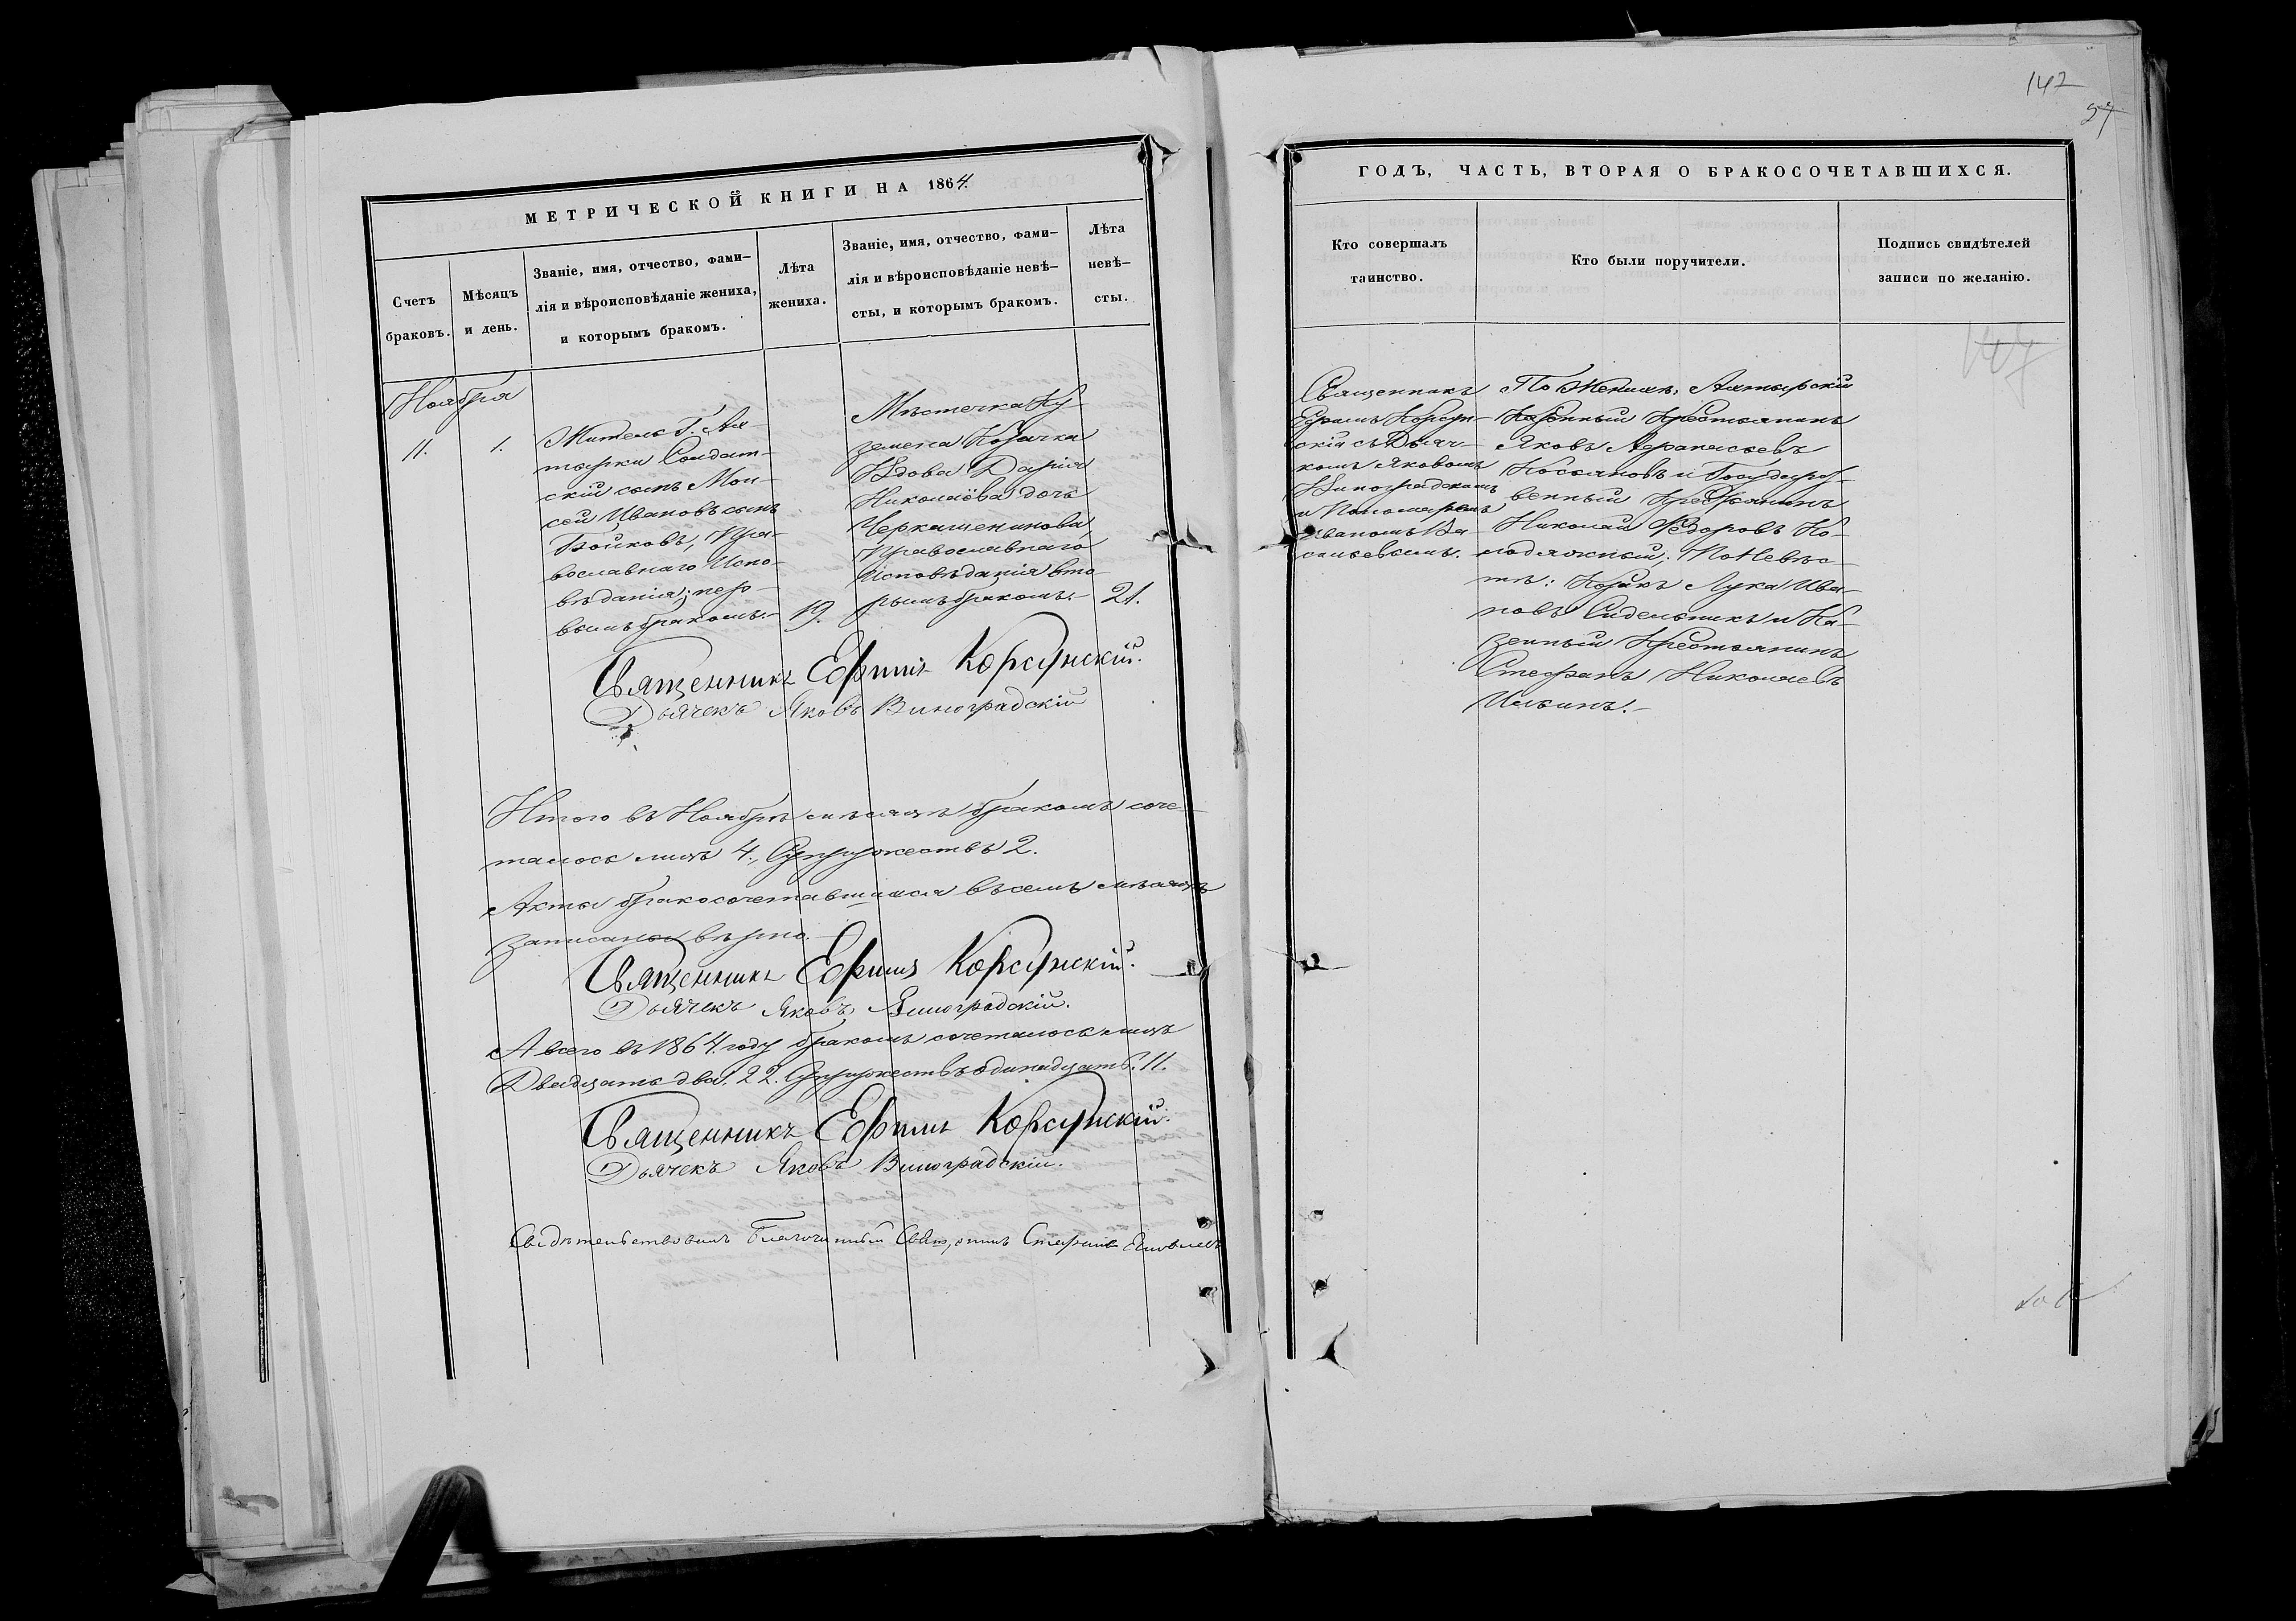 МЕТРИЧЕСКОЙ КНИГИ НА 1864.
Счетъ
браковъ.
Мѣсяцъ
и день.
Званіе, имя, отчество, фами-
лія и вѣроисповѣданіе жениха,
и которымъ бракомъ.
Лѣта
жениха.
Званіе, имя, отчество, фами-
лія и вѣроисповѣданіе невѣ-
сты, и которымъ бракомъ.
Лѣта
невѣ-
сты.
Ноября
11.
1.
Житель Г. Ах-
тырки Солдат-
скій сынъ Мои-
сей Ивановъ сынъ
Бойковъ, Пра-
вославнаго Испо-
вѣданія; пер-
вымъ бракомъ.-
19.
Мѣстечка Ку-
земена Козачка
Вдова Дарія
Николаёва дочь
Черкашенинова,
Православнаго
Исповѣданія вто-
рымъ бракомъ.-
21.
Священникъ Ефимъ Корсунскій.
Дьячекъ Яковъ Виноградскій
Итого въ Ноябрѣ мѣсяцѣ бракомъ соче-
талось лицъ 4., Супружествъ 2.
Акты бракосочетавшихся въ семъ мѣсяцѣ
записаны вѣрно.-
Священникъ Ефимъ Корсунскій.
Дьячекъ Яковъ Виноградскій.
А всего въ 1864. году бракомъ сочеталось лицъ
Двадцать два. 22. Супружествъ одинадцать. 11.
Священникъ Ефимъ Корсунскій.
Дьячекъ Яковъ Виноградскій.
Свидѣтельствовалъ Благочинный Стефанъ
142
27
ГОДЪ, ЧАСТЬ, ВТОРАЯ О БРАКОСОЧЕТАВШИХСЯ.
Кто совершалъ
таинство.
Кто были поручители.
Подпись свидѣтелей
записи по желанію.
Священникъ
Ефимъ Корсун-
скій съ Дьяч-
комъ Яковомъ
Виноградскимъ
и Пономаремъ
Иваномъ Ва-
сильевымъ.
По Женихѣ: Ахтырскій
Казенный Крестьянинъ
Яковъ Афанасьевъ
и Государс-
венный Крестьянинъ
Николай Федоровъ Ко-
лодяжный; По Невѣс-
тѣ: Козакъ Лука Ива-
новъ Сидельникъ и Ка-
зенный Крестьянинъ
Стефанъ Николаевъ
Ильинъ.-